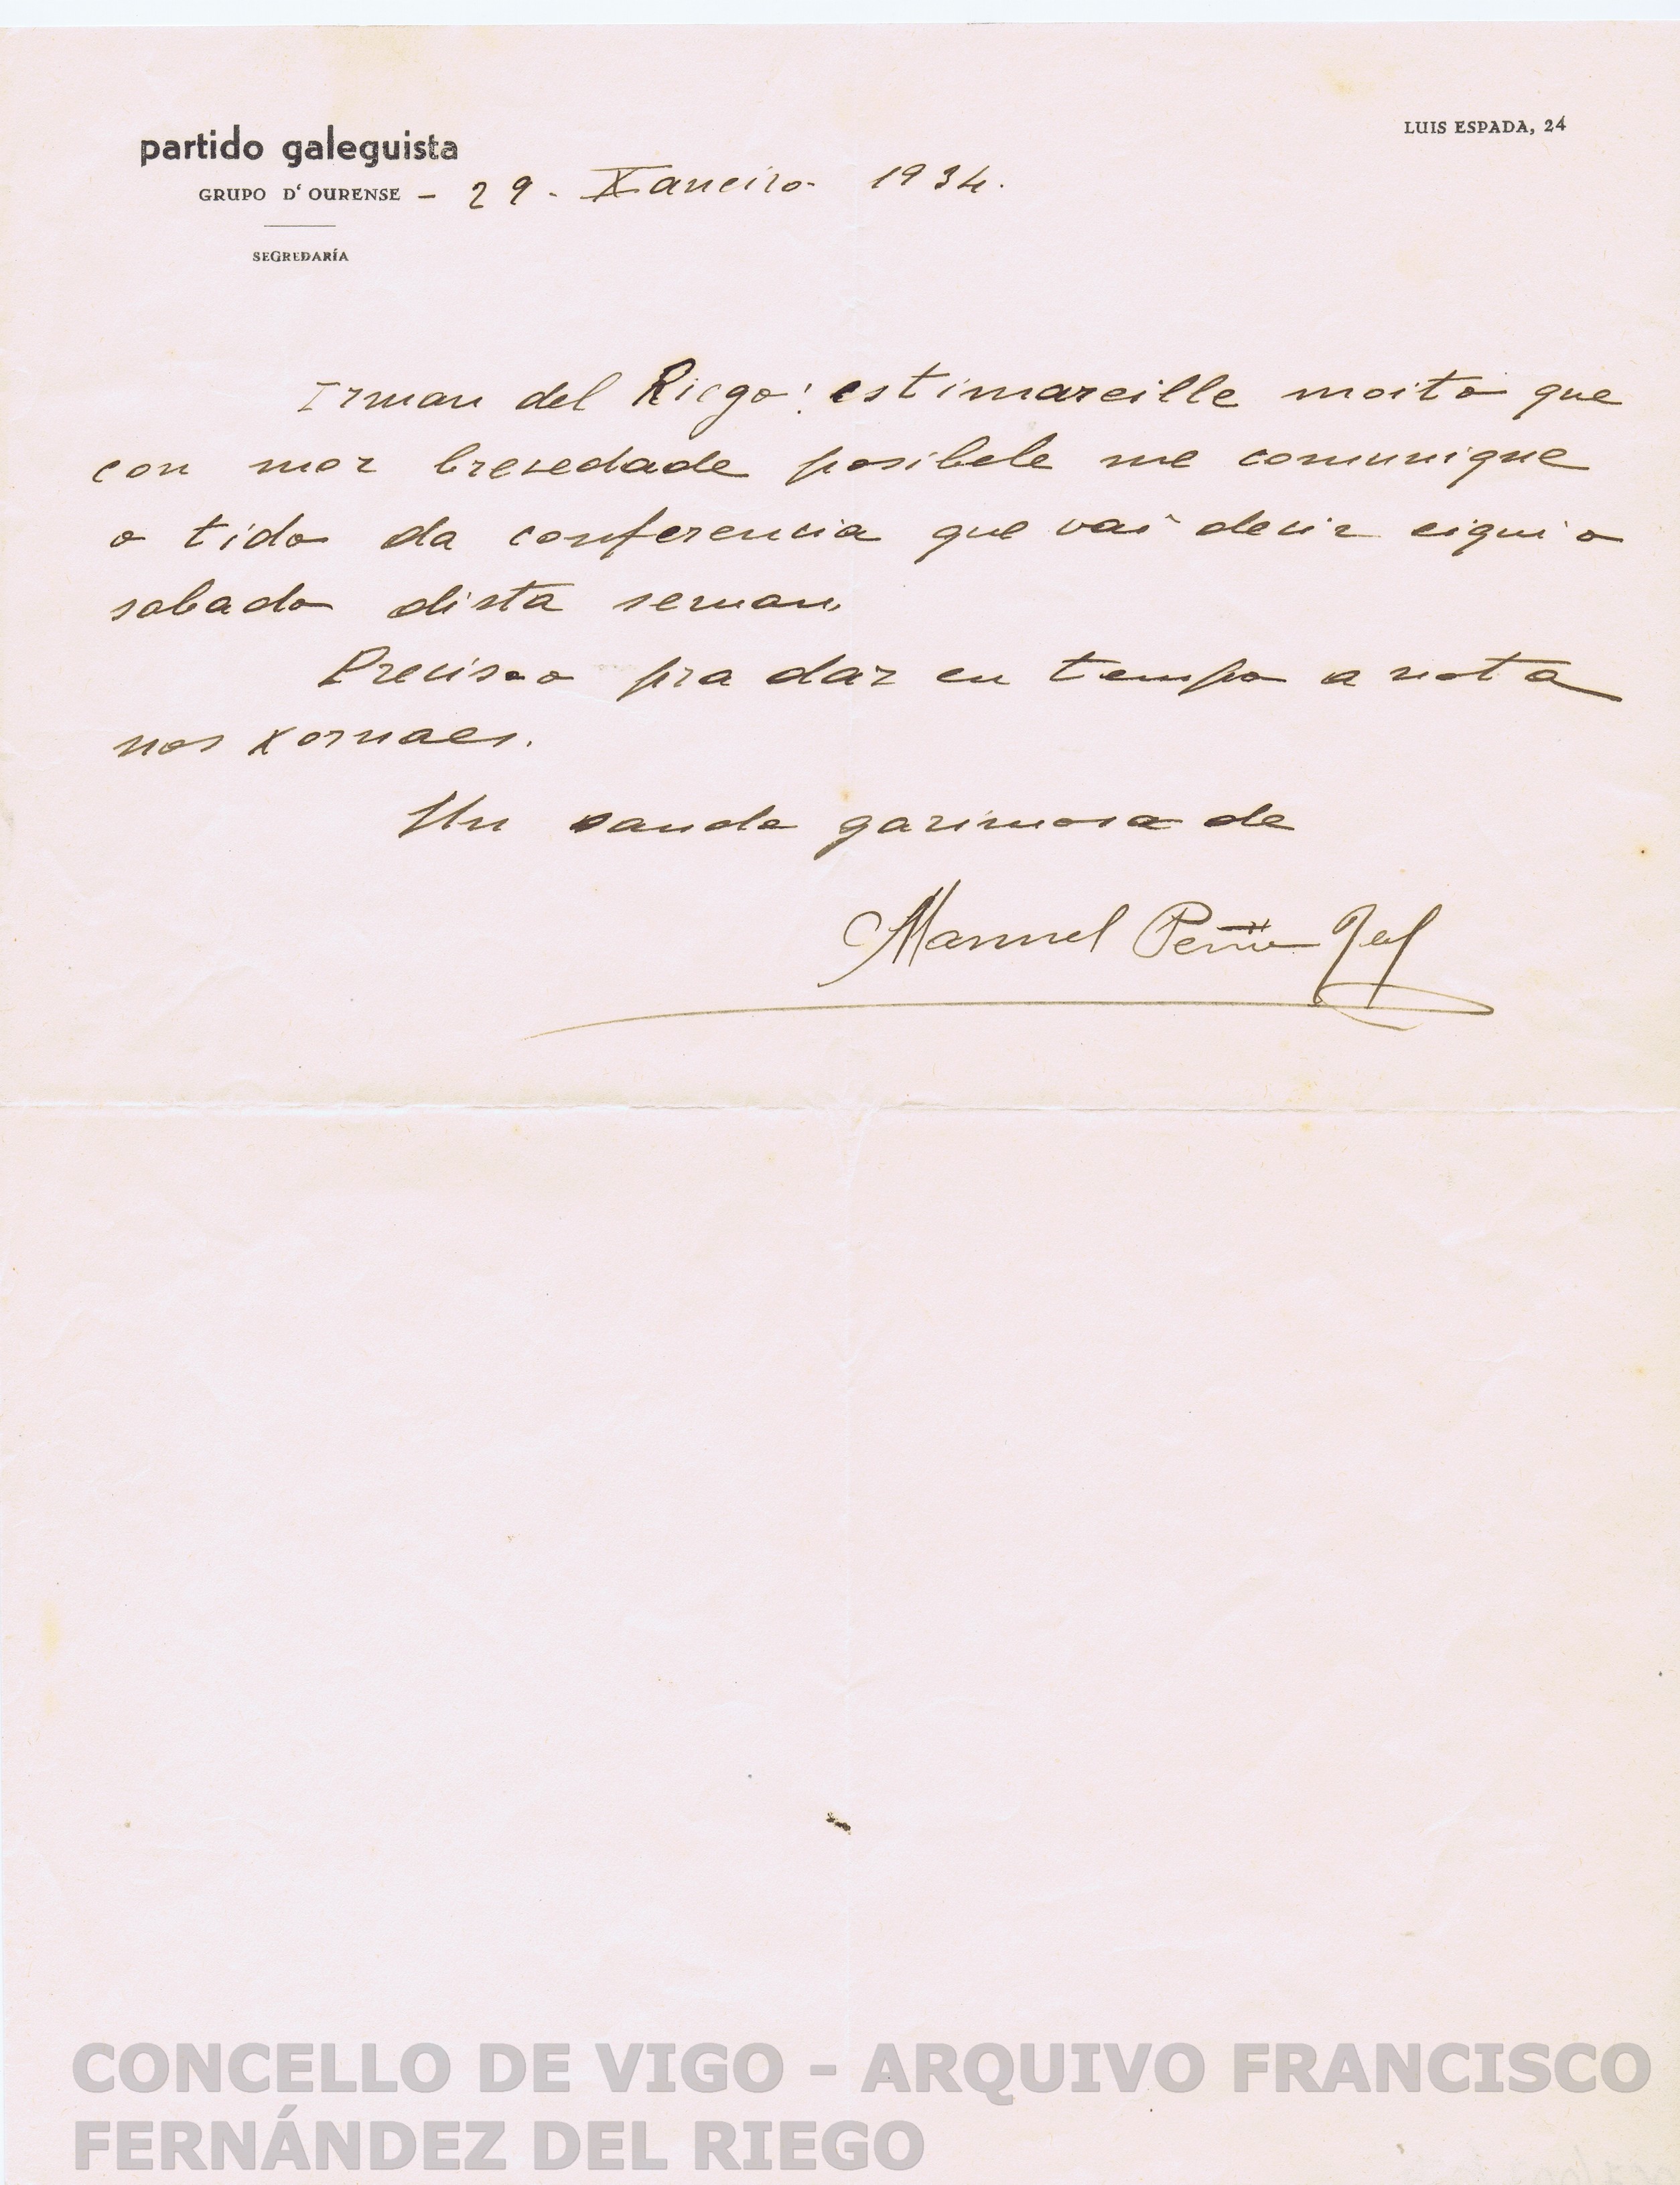 LUIS ESPADA, 24
partido galeguista
GRUPO D' OURENSE - 29 - Xaneiro - 1934.
SEGREDARÍA
Irman del Riego: estimareille moito que
con mor brevedade posibele me comunique
o tido da conferencia que vai decir eiqui o
sabado dista seman.
Preciso-o pra dar en tempo a nota
nos xornaes.
Un saudo garimoso de
Manuel Peña Rey
CONCELLO DE VIGO - ARQUIVO FRANCISCO
FERNÁNDEZ DEL RIEGO